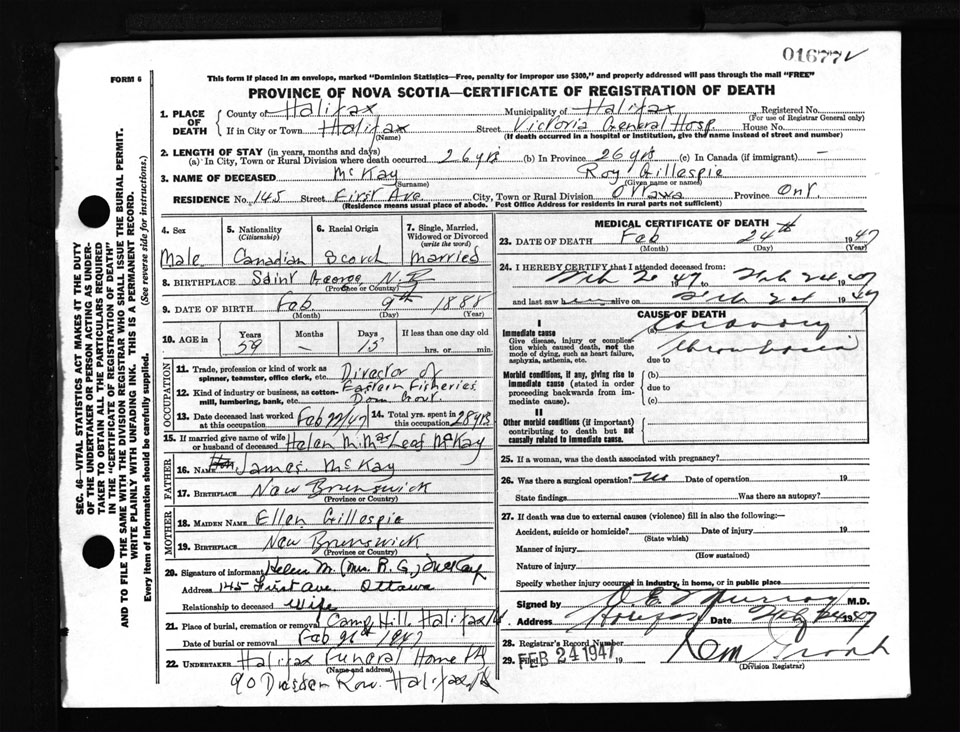 01677V
FORM 6
This form if placed in an envelope, marked "Dominion Statistics—Free, penalty for improper use $300," and properly addressed will pass through the mail "FREE"
PROVINCE OF NOVA SCOTIA—CERTIFICATE OF REGISTRATION OF DEATH
1. PLACE OF DEATH
County of Halifax Municipality of Halifax Registered No.
(For use of Registrar General only)
If in City or Town Halifax Street Victoria General Hosp. House No.
(Name) (If death occurred in a hospital or institution, give the name instead of street and number)
2. LENGTH OF STAY (in years, months and days)
(a) In City, Town or Rural Division where death occurred 26 yrs (b) In Province 26 yrs (c) In Canada (if immigrant) —
3. NAME OF DECEASED McKay Roy Gillespie
(Surname) (Given name or names)
RESIDENCE No. 145 Street First Ave. City, Town or Rural Division Ottawa Province Ont.
(Residence means usual place of abode. Post Office Address for residents in rural parts not sufficient)
4. Sex
Male
5. Nationality
(Citizenship)
Canadian
6. Racial Origin
Scotch
7. Single, Married, Widowed or Divorced
(write the word)
Married
8. BIRTHPLACE Saint George, N.B.
(Province or Country)
9. DATE OF BIRTH Feb. 9th 1888
(Month) (Day) (Year)
10. AGE in Years Months Days If less than one day old
59 — 15 hrs. or min.
OCCUPATION
11. Trade, profession or kind of work as spinner, teamster, office clerk, etc. Director of
12. Kind of industry or business, as cotton-mill, lumbering, bank, etc. Eastern Fisheries
Dom Govt.
13. Date deceased last worked at this occupation Feb 22/47 14. Total yrs. spent in this occupation 28 yrs
15. If married give name of wife or husband of deceased Helen M. MacLeaf McKay
FATHER
16. NAME James McKay
17. BIRTHPLACE New Brunswick
(Province or Country)
MOTHER
18. MAIDEN NAME Ellen Gillespie
19. BIRTHPLACE New Brunswick
(Province or Country)
20. Signature of informant Helen M. (Mrs. R. G.) McKay
Address 145 First Ave. Ottawa
Relationship to deceased Wife
21. Place of burial, cremation or removal Camp Hill, Halifax
Date of burial or removal Feb 26th 1947
22. UNDERTAKER Halifax Funeral Home Ltd
(Name and address)
90 Dresden Row. Halifax
MEDICAL CERTIFICATE OF DEATH
23. DATE OF DEATH Feb 24th 1947
(Month) (Day) (Year)
24. I HEREBY CERTIFY that I attended deceased from:
1947 to Feb 24 1947
and last saw him alive on Feb 24 1947
CAUSE OF DEATH
I
Immediate cause
Give disease, injury or complication which caused death, not the mode of dying, such as heart failure, asphyxia, asthenia, etc.
(a) Coronary
Thrombosis
due to
Morbid conditions, if any, giving rise to immediate cause (stated in order proceeding backwards from immediate cause).
(b)
due to
(c)
II
Other morbid conditions (if important) contributing to death but not causally related to immediate cause.
25. If a woman, was the death associated with pregnancy?
26. Was there a surgical operation? No Date of operation 19
State findings Was there an autopsy?
27. If death was due to external causes (violence) fill in also the following:—
Accident, suicide or homicide? Date of injury 19
(State which)
Manner of injury
(How sustained)
Nature of injury
Specify whether injury occurred in industry, in home, or in public place
Signed by O. E. Murray M.D.
Address Halifax Date Feb 24 1947
28. Registrar's Record Number
29. Filed FEB 24 1947 19
(Division Registrar)
SEC. 46—VITAL STATISTICS ACT MAKES IT THE DUTY
OF THE UNDERTAKER OR PERSON ACTING AS UNDER-
TAKER TO OBTAIN ALL THE PARTICULARS REQUIRED
IN THE "CERTIFICATE OF REGISTRATION OF DEATH"
AND TO FILE THE SAME WITH THE DIVISION REGISTRAR WHO SHALL ISSUE THE BURIAL PERMIT.
WRITE PLAINLY WITH UNFADING INK. THIS IS A PERMANENT RECORD.
Every item of information should be carefully supplied. (See reverse side for instructions.)